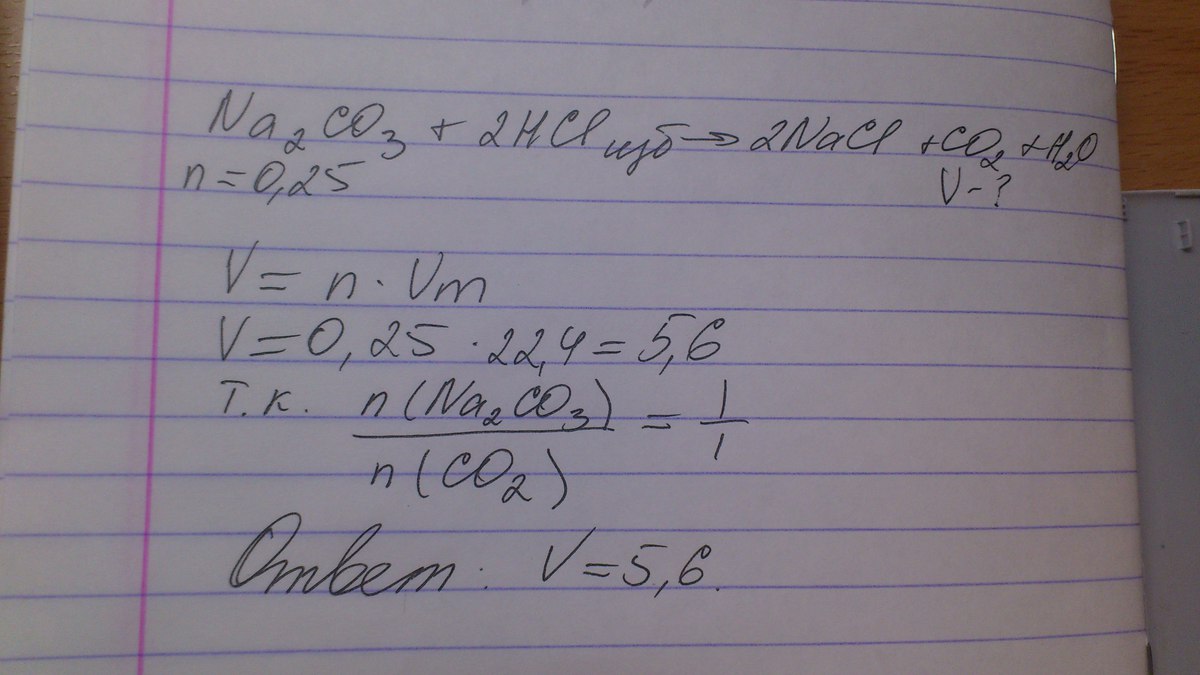 Na₂CO₃ + 2HCl изб → 2NaCl + CO₂ + H₂O
n = 0,25 V - ?
V = n · Vm
V = 0,25 · 22,4 = 5,6
т.к. n(Na₂CO₃) / n(CO₂) = 1 / 1
Ответ: V = 5,6.